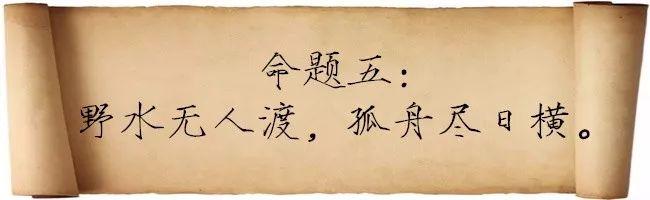 命题五：
野水无人渡，孤舟尽日横。